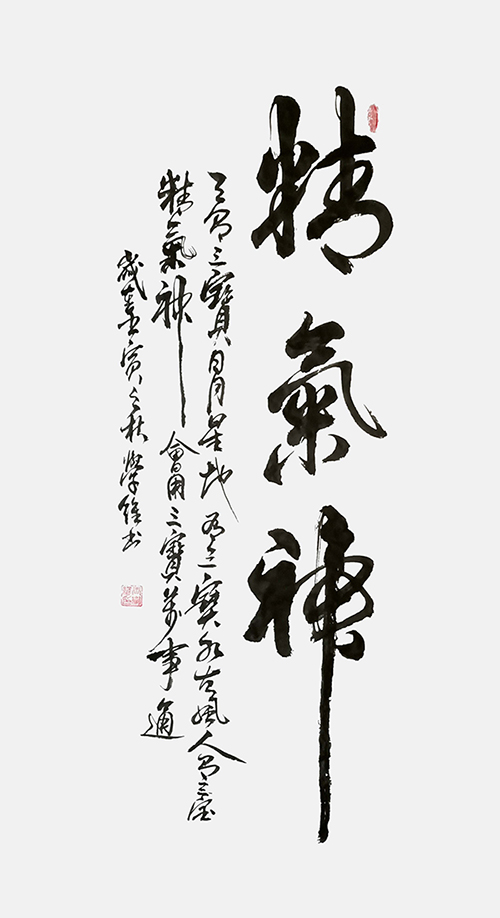 精氣神
天有三寶日月星地有三寶水火風人有三寶
精氣神會用三寶萬事通
歲寅之秋學書